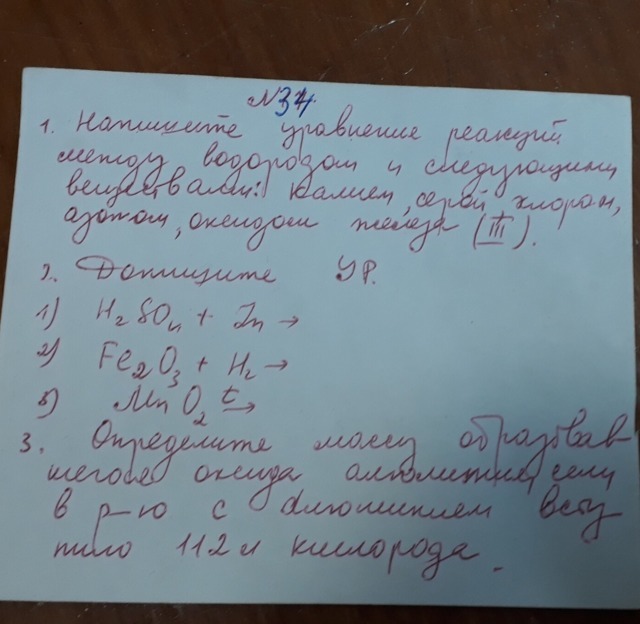 №34
1. Напишите уравнение реакций
между водородом и следующими
веществами: калием, серой хлором,
азотом, оксидом железа (III).
2. Допишите УР.
1) H₂SO₄ + Zn →
2) Fe₂O₃ + H₂ →
3) MnO₂ t→
3. Определите массу образовав
шегося оксида алюминия, если
в р-ю с алюминием всту
пило 112 л кислорода.